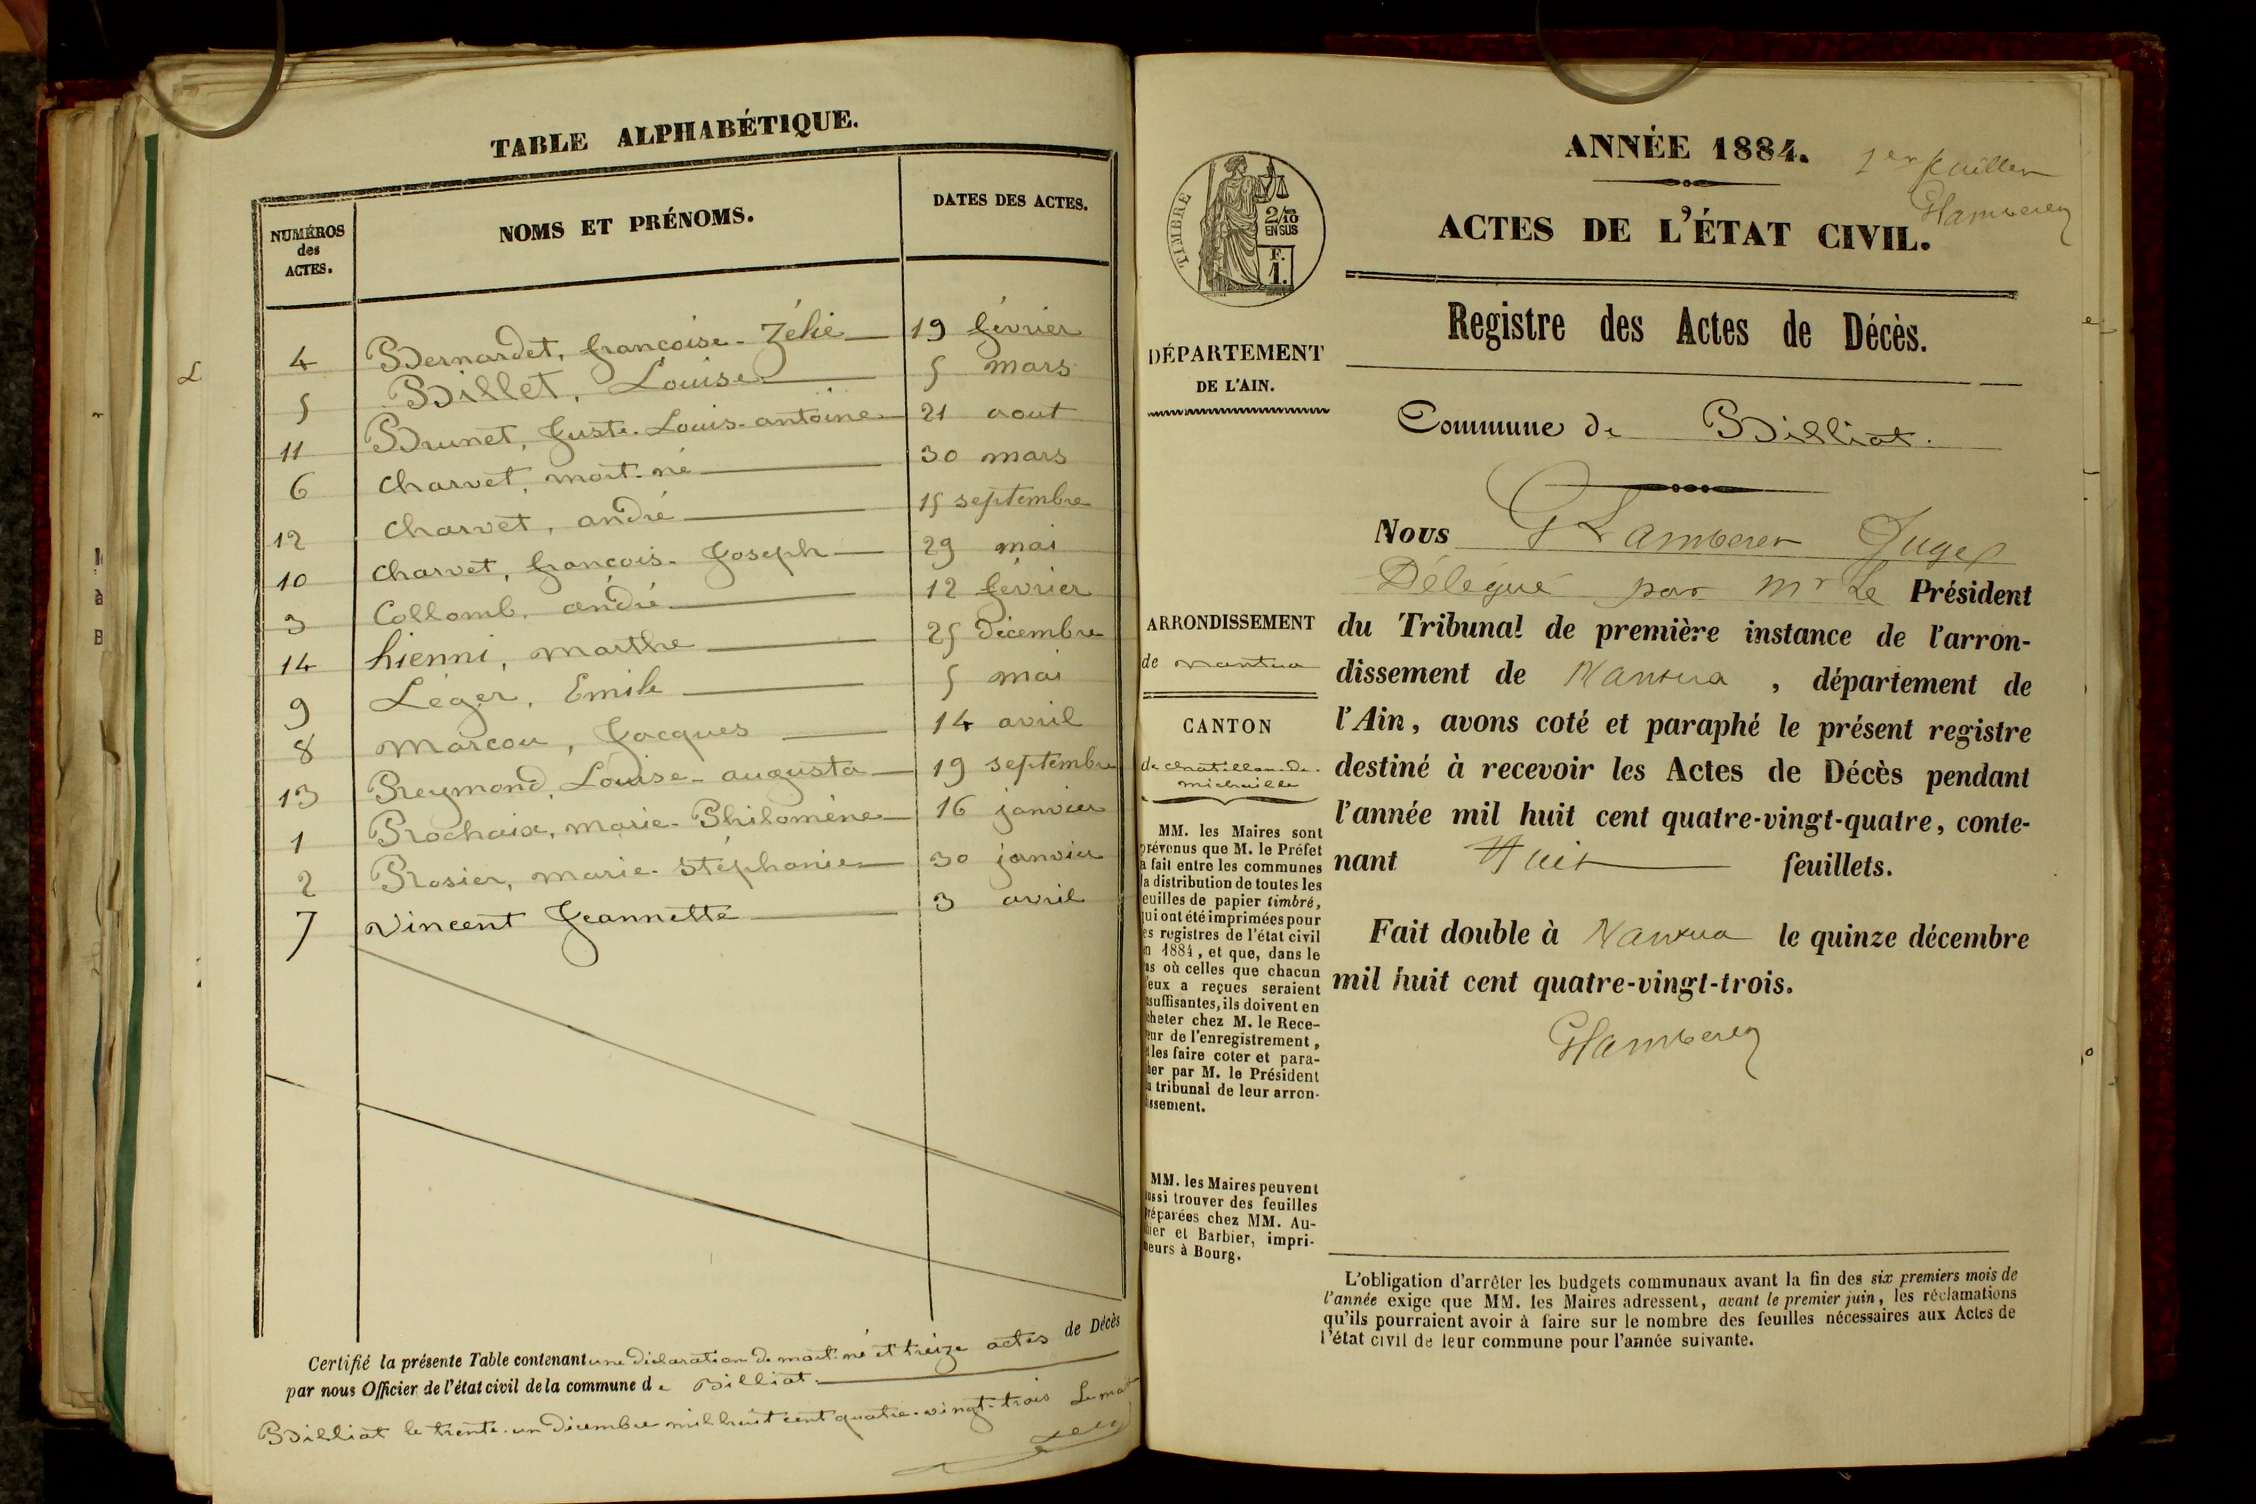 TABLE ALPHABÉTIQUE.
NUMÉROS des ACTES.
NOMS ET PRÉNOMS.
DATES DES ACTES.
4 Bernardet, françoise-Zélie 19 février
5 Billet, Louise 5 mars
11 Brunet, Juste-Louis-antoine 21 aout
6 Charvet, mort-né 30 mars
12 Charvet, andré 15 septembre
10 Charvet, françois-Joseph 29 mai
3 Collomb, andré 12 février
14 hienni, marthe 25 décembre
9 Léger, Emile 5 mai
8 Marcou, Jacques 14 avril
13 Reymond, Louise-augusta 19 septembre
1 Rochaix, marie-Philomène 16 janvier
2 Rosier, marie-Stéphanie 30 janvier
7 Vincent Jeannette 3 avril
Certifié la présente Table contenant une déclaration de mort-né et treize actes de Décès
par nous Officier de l'état civil de la commune de Billiat.
Billiat le trente-un décembre mil huit cent quatre-vingt-trois Le
ANNÉE 1884.
1er feuillet
ACTES DE L'ÉTAT CIVIL.
Registre des Actes de Décès.
Commune de Billiat.
TIMBRE
2/10
EN SUS
F.
1.
DÉPARTEMENT
DE L'AIN.
ARRONDISSEMENT
de nantua
CANTON
de chatillon-de-
michaille
MM. les Maires sont
prévenus que M. le Préfet
a fait entre les communes
la distribution de toutes les
feuilles de papier timbré,
qui ont été imprimées pour
les registres de l'état civil
en 1884, et que, dans le
cas où celles que chacun
d'eux a reçues seraient
insuffisantes, ils doivent en
acheter chez M. le Rece-
veur de l'enregistrement,
et les faire coter et para-
pher par M. le Président
du tribunal de leur arron-
dissement.
MM. les Maires peuvent
aussi trouver des feuilles
préparées chez MM. Au-
thier et Barbier, impri-
meurs à Bourg.
Nous G Lamberet Juge
Délégué par Mr Le Président
du Tribunal de première instance de l'arron-
dissement de Nantua, département de
l'Ain, avons coté et paraphé le présent registre
destiné à recevoir les Actes de Décès pendant
l'année mil huit cent quatre-vingt-quatre, conte-
nant Huit feuillets.
Fait double à Nantua le quinze décembre
mil huit cent quatre-vingt-trois.
L'obligation d'arrêter les budgets communaux avant la fin des six premiers mois de
l'année exige que MM. les Maires adressent, avant le premier juin, les réclamations
qu'ils pourraient avoir à faire sur le nombre des feuilles nécessaires aux Actes de
l'état civil de leur commune pour l'année suivante.